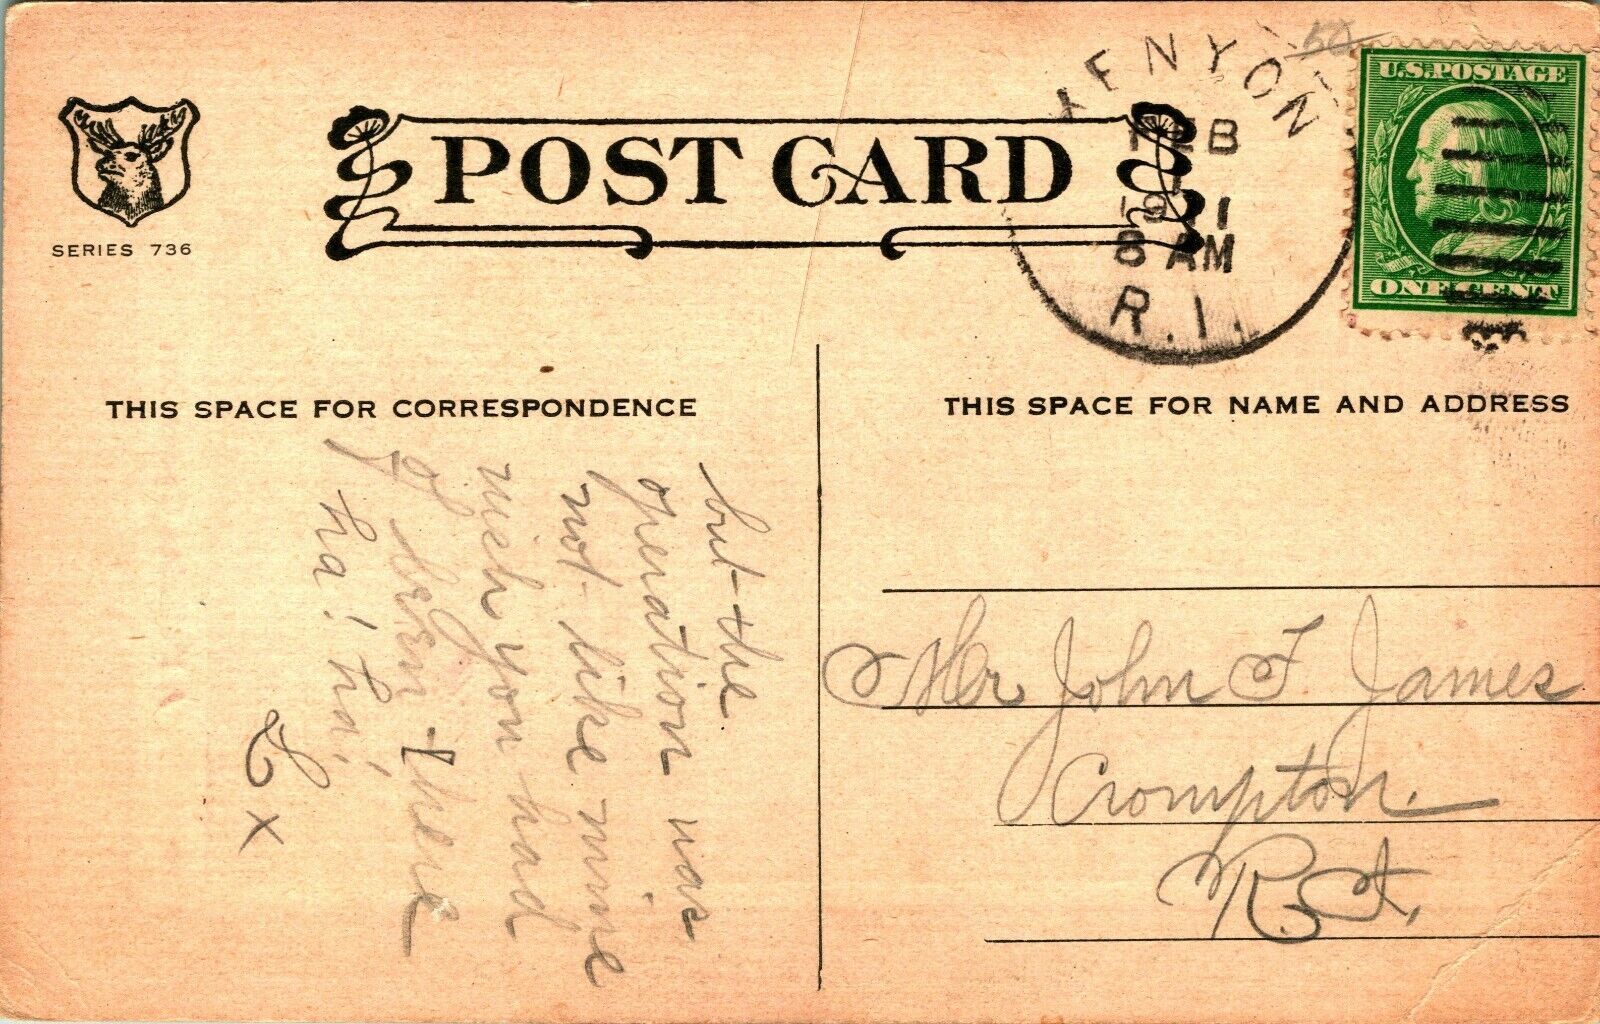 POST CARD
SERIES 736
KENYON
FEB
1911
8 AM
R.I.
50
U.S. POSTAGE
ONE CENT
THIS SPACE FOR CORRESPONDENCE
THIS SPACE FOR NAME AND ADDRESS
but the
operation was
not like mine
wish you had
of been there
ha! ha!
L x
Mr John F. James
Crompton.
R.I.